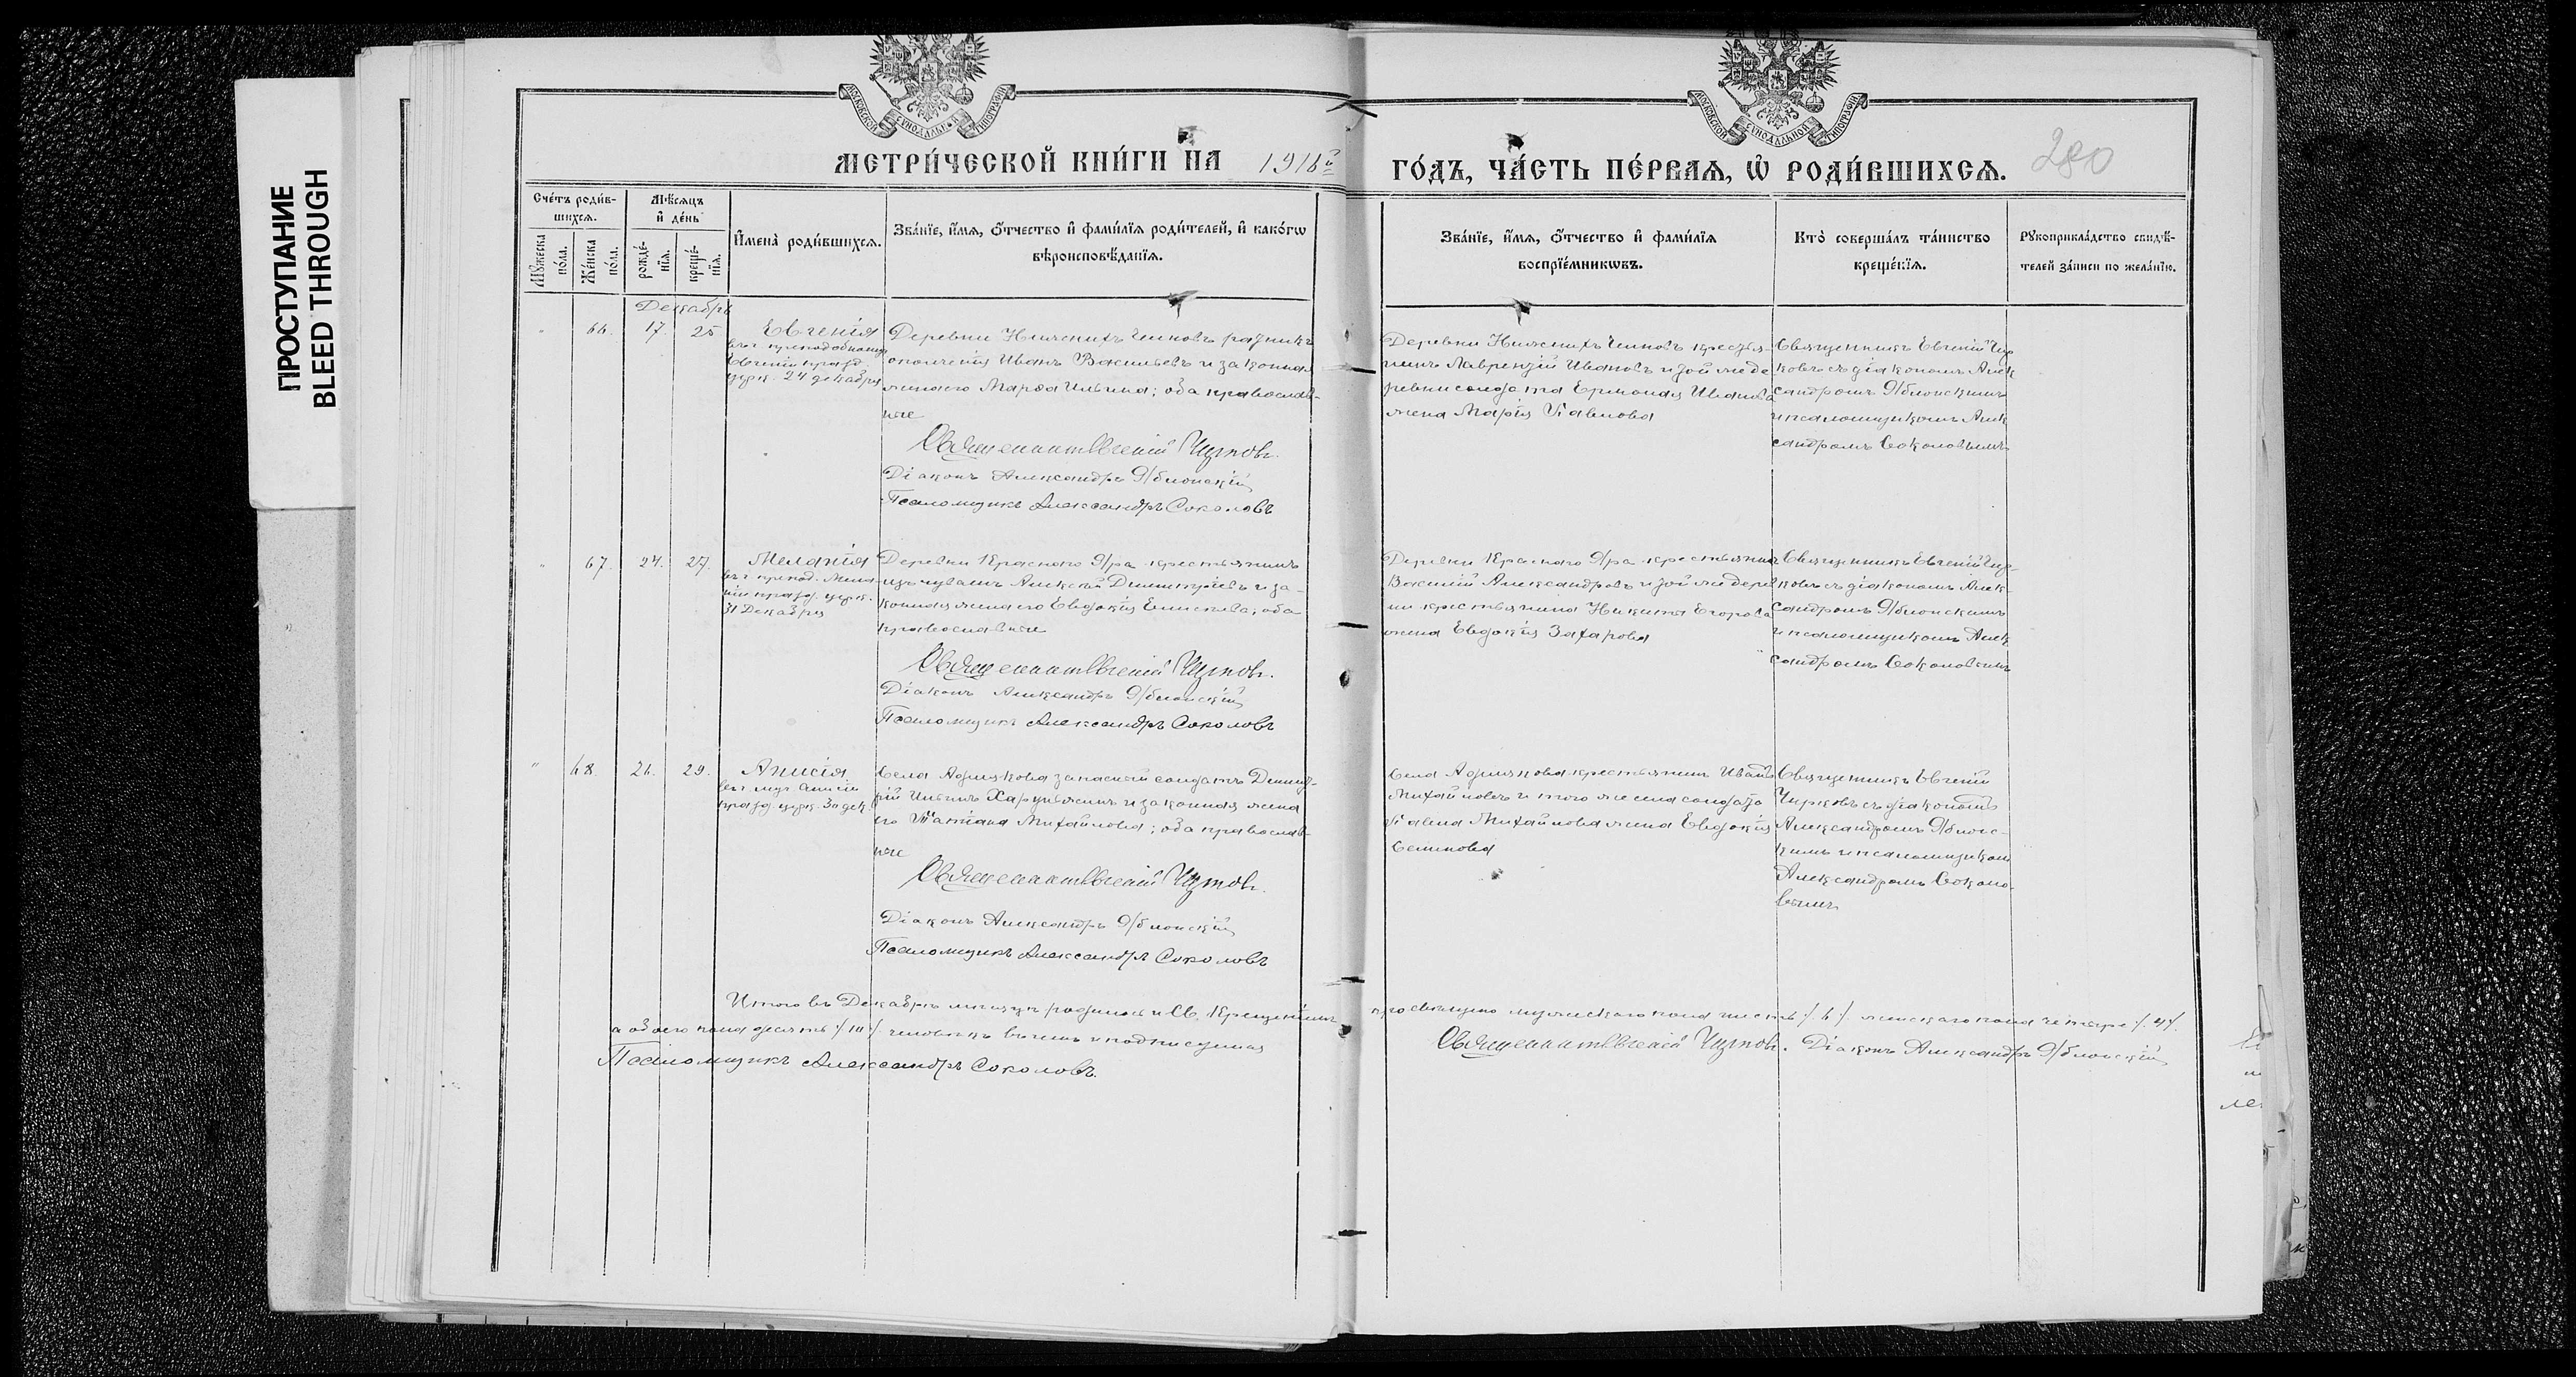 ПРОСТУПАНИЕ
BLEED THROUGH
МОСКОВСКОЙ СѴНОДАЛЬНОЙ ТИПОГРАФІИ
МОСКОВСКОЙ СѴНОДАЛЬНОЙ ТИПОГРАФІИ
МЕТРИ́ЧЕСКОЙ КНИ́ГИ НА 1916й
ГО́ДЪ, ЧА́СТЬ ПЕ́РВАѦ, Ѡ҆ РОДИ́ВШИХСѦ.
280
Сче́тъ роди́в-
шихсѧ.
Мѣ́сѧцъ
и҆ де́нь
Мꙋ́жеска
по́ла.
Же́нска
по́ла.
рожде́-
нїѧ.
креще́-
нїѧ.
И҆мена̀ роди́вшихсѧ.
Зва́нїе, и҆́мѧ, ѻ҆́тчество и҆ фами́лїѧ роди́телей, и҆ како́гѡ
вѣроисповѣ́данїѧ.
Зва́нїе, и҆́мѧ, ѻ҆́тчество и҆ фами́лїѧ
воспрїе́мникѡвъ.
Кто̀ соверша́лъ та́инство
креще́нїѧ.
Рꙋкоприкла́дство свидѣ́-
телей за́писи по жела́нїю.
Декабрь
" 66. 17. 25 Евгенія
въ ч. преподобномуч.
Евгеніи празд.
церк. 24 декабря
Деревни Нижнихъ Чиповъ ратникъ
ополченія Иванъ Васильевъ и законная
жена его Марѳа Ильина; оба православ-
ные
Священникъ Евгеній Чирковъ.
Діаконъ Александръ Яблонскій
Псаломщикъ Александръ Соколовъ
Деревни Нижнихъ Чиповъ крестья-
нинъ Лаврентій Ивановъ и той же де
ревни солдата Ермолая Иванова
жена Марія Павлова
Священникъ Евгеній Чир
ковъ съ діакономъ Алек
сандромъ Яблонскимъ
и псаломщикомъ Алек
сандромъ Соколовымъ
" 67. 24. 27. Меланія
въ ч. препод. Мела-
ніи празд. церк.
31 Декабря
Деревни Краснаго Яра крестьянинъ
изъ чувашъ Алексѣй Димитріевъ и за-
конная жена его Евдокія Елисеева; оба
православные
Священникъ Евгеній Чирковъ.
Діаконъ Александръ Яблонскій
Псаломщикъ Александръ Соколовъ
Деревни Краснаго Яра крестьянинъ
Василій Александровъ и той же дерев
ни крестьянина Никиты Егорова
жена Евдокія Захарова
Священникъ Евгеній Чир-
ковъ съ діакономъ Алек-
сандромъ Яблонскимъ
и псаломщикомъ Алек
сандромъ Соколовымъ
" 68. 26. 29. Анисія
въ ч. муч. Анисіи
празд. церк. 30 дек.
Села запасный солдатъ Димит-
рій Ильинъ и законная жена
его Татіана Михайлова; оба православ-
ные
Священникъ Евгеній Чирковъ.
Діаконъ Александръ Яблонскій
Псаломщикъ Александръ Соколовъ
Села крестьянинъ Иванъ
Михайловъ и того же села солдата
Павла Михайлова жена Евдокія
Семенова
Священникъ Евгеній
Чирковъ съ діакономъ
Александромъ Яблонс-
кимъ и псаломщикомъ
Александромъ Соколо-
вымъ
Итого въ Декабрѣ мѣсяцѣ родилось и Св. Крещеніемъ просвѣщено мужескаго пола шесть /6/. женскаго пола четыре /.4/.
а обоего пола десять /10/ человѣкъ въ чемъ и подписуемся
Священникъ Евгеній Чирковъ. Діаконъ Александръ Яблонскій
Псаломщикъ Александръ Соколовъ.